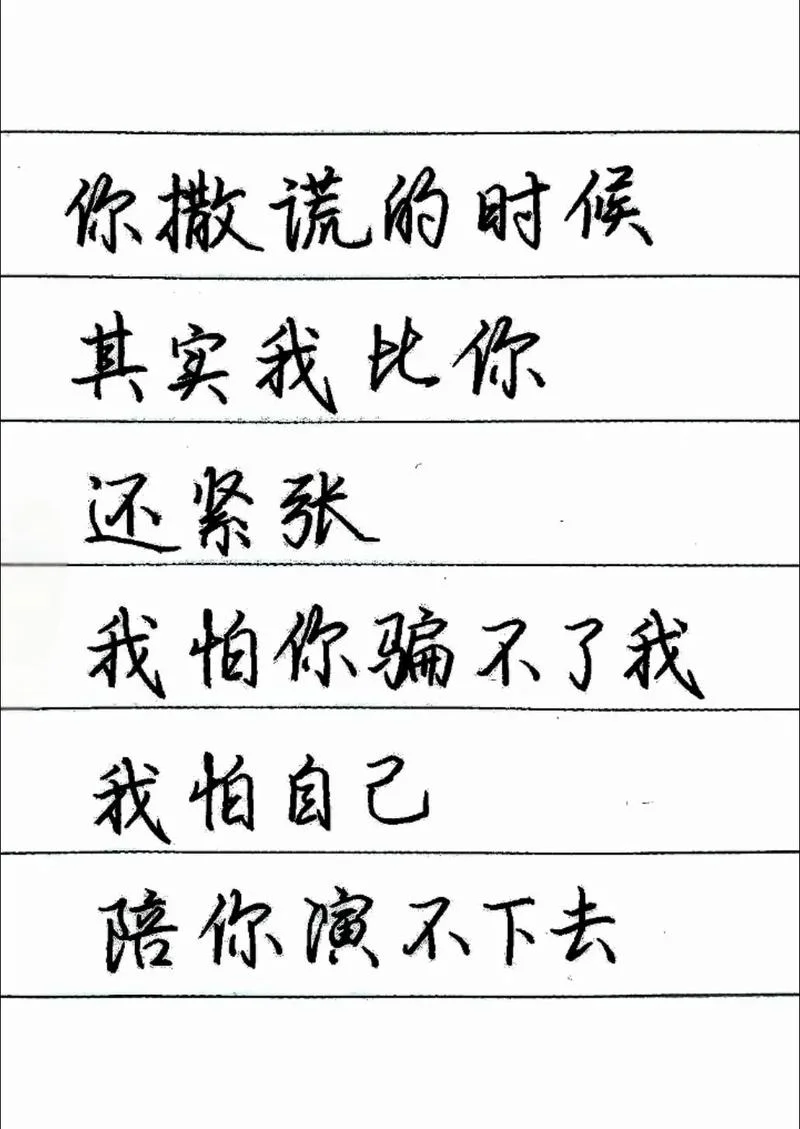 你撒谎的时候
其实我比你
还紧张
我怕你骗不了我
我怕自己
陪你演不下去